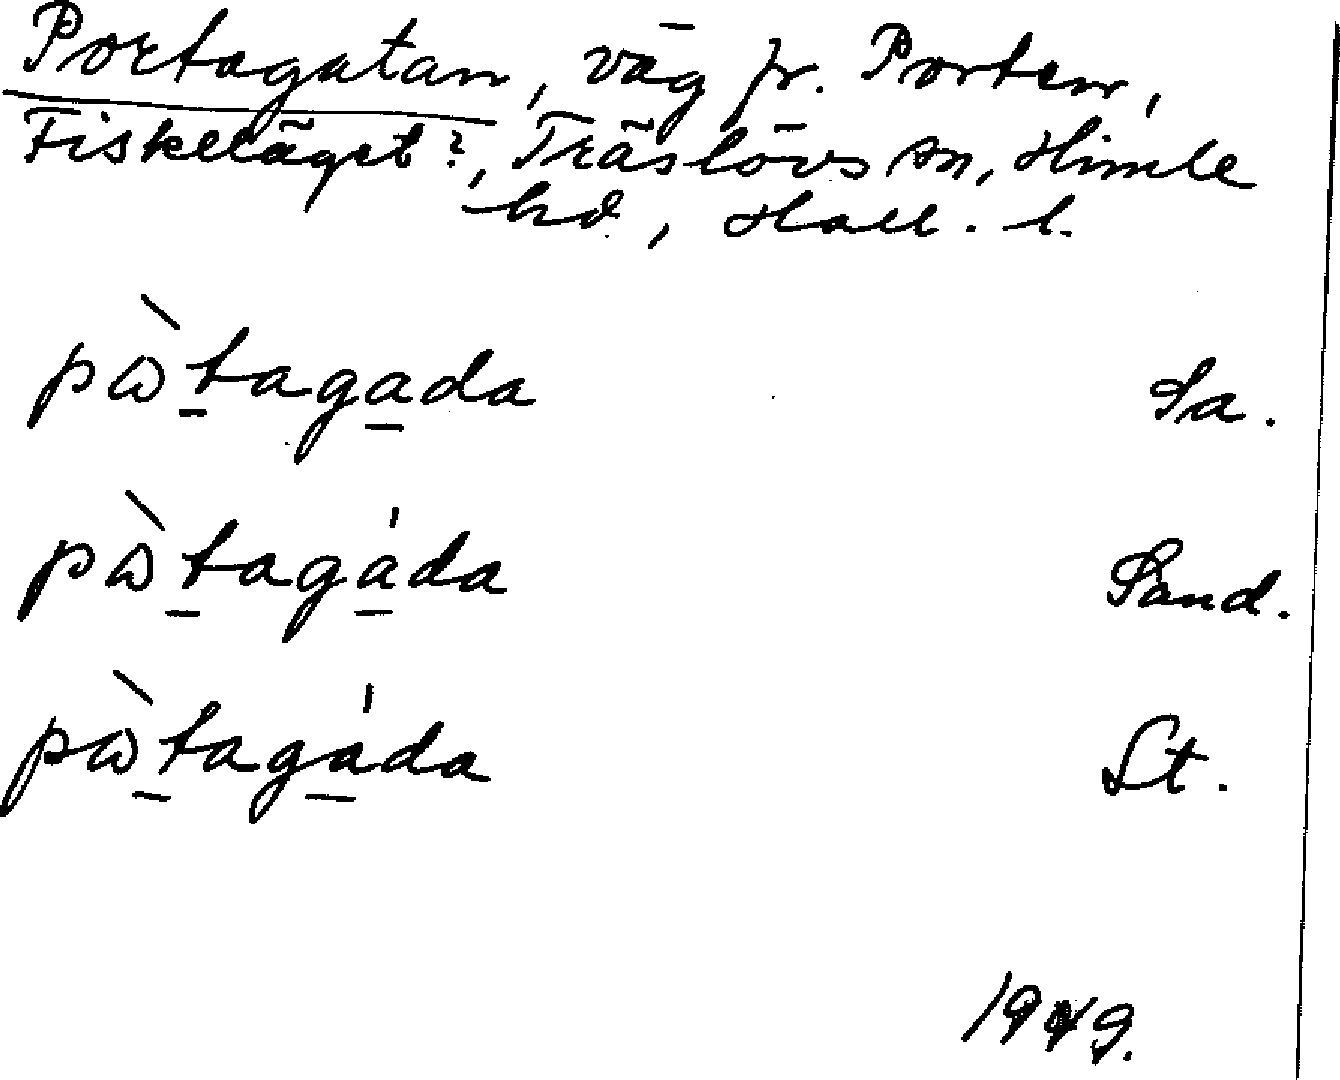 Portagatan, väg fr. Porten,
Fiskeläget?, Träslövs sn, Himle
hd, Hall. l.
pὼtagada Sa.
pὼtagáda Sand.
pὼtagáda St.
1949.